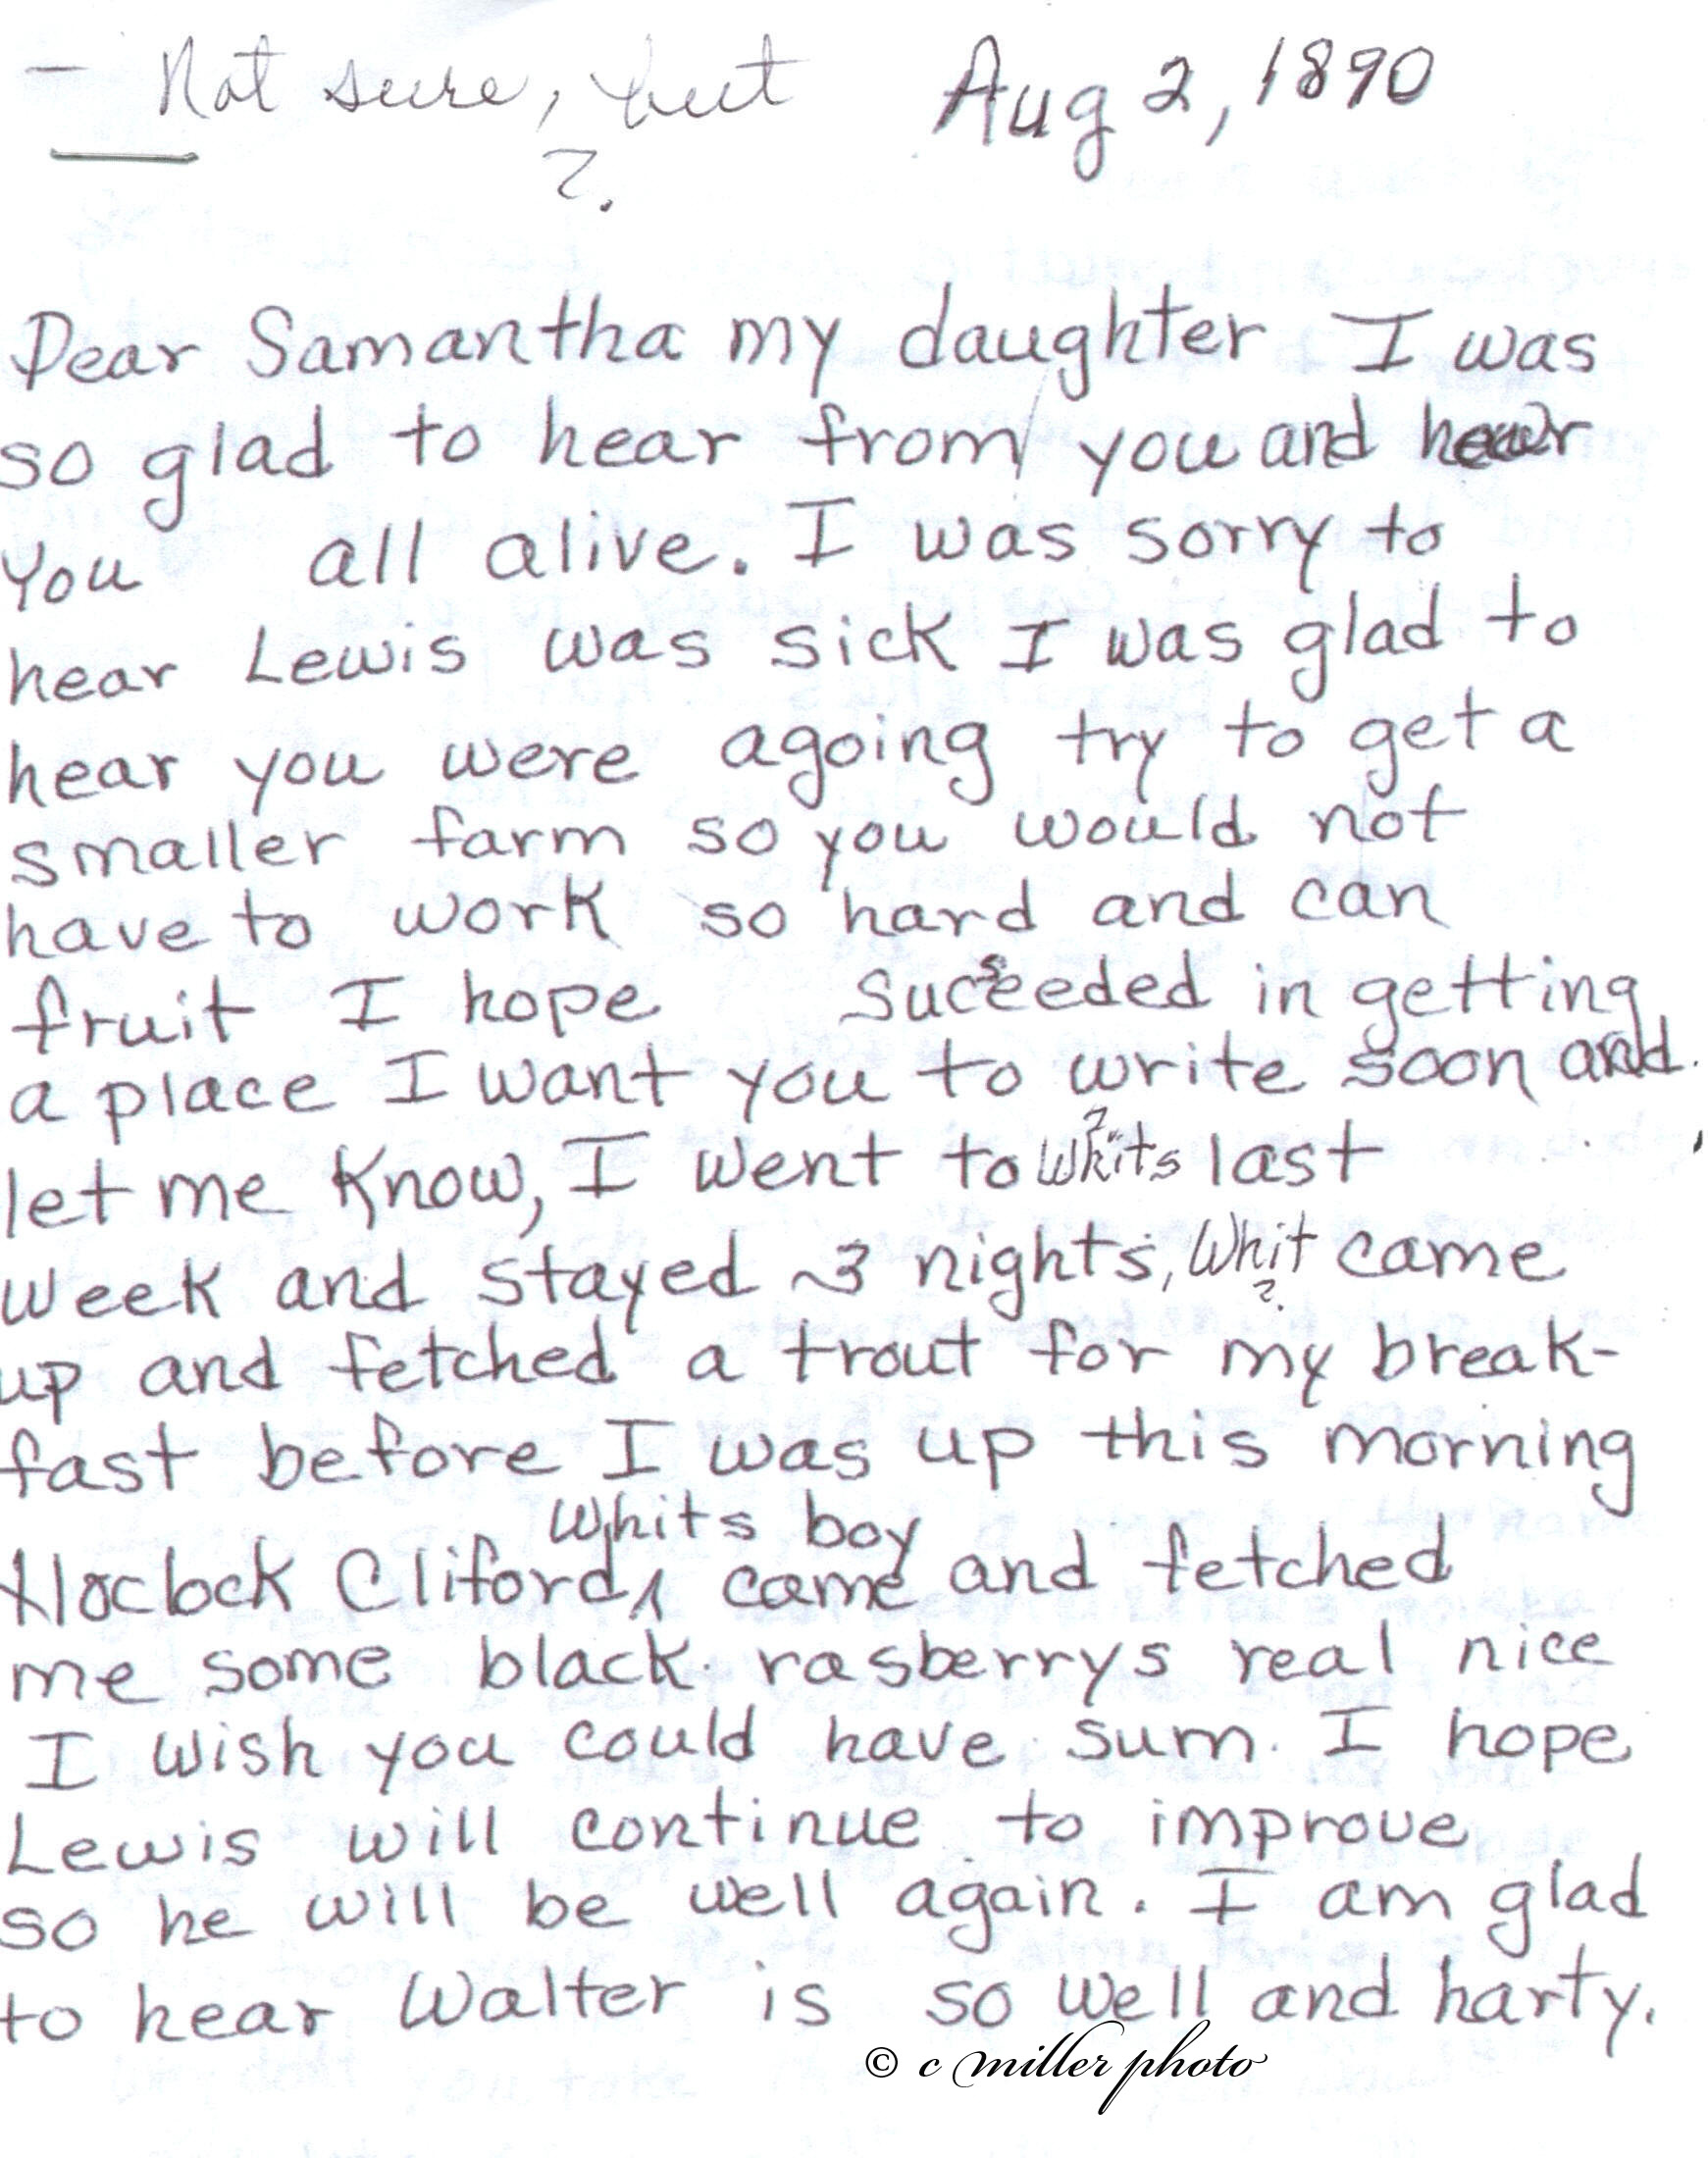 — Not sure, but Aug 2, 1890
?
Dear Samantha my daughter I was
so glad to hear from you and hear
you all alive. I was sorry to
hear Lewis was sick I was glad to
hear you were agoing try to get a
smaller farm so you would not
have to work so hard and can
fruit I hope Sucseeded in getting
a place I want you to write soon and
let me know, I went to Whits last
?
week and stayed 3 nights, Whit came
?
up and fetched a trout for my break-
fast before I was up this morning
Whits boy
Cliford ^ came and fetched
me some black rasberrys real nice
I wish you could have sum. I hope
Lewis will continue to improve
so he will be well again. I am glad
to hear Walter is so well and harty.
© c miller photo